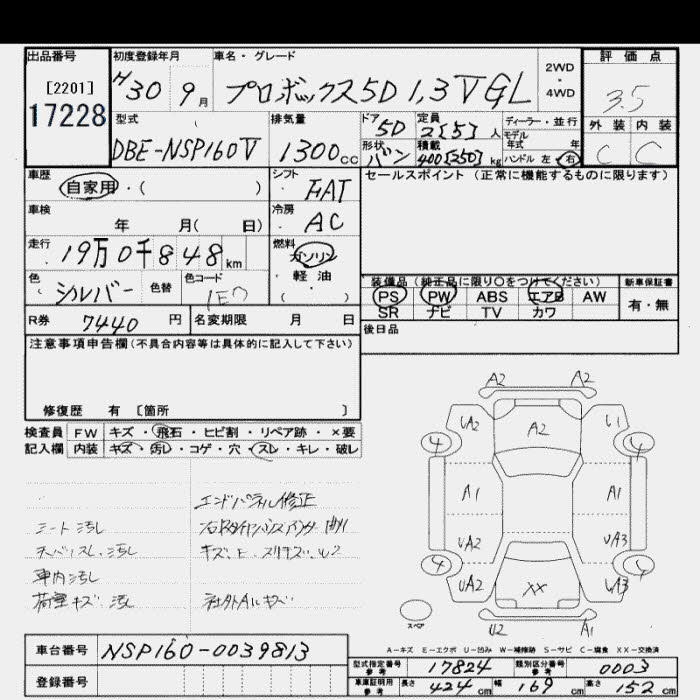 出品番号 初度登録年月 車名・グレード 2WD ・ 4WD 評価点
[2201]
17228
H30 9月 プロボックス5D 1,3 V GL 3.5
外装 内装
C C
型式 排気量 ドア 5D 定員 2[5]人 ディーラー・並行
モデル年式 年
DBE-NSP160V 1300cc 形状 バン 積載 400[250]kg ハンドル 左・右
車歴 シフト FAT セールスポイント (正常に機能するものに限ります)
自家用・( )
車検 冷房 AC
年 月( 日)
走行 燃料
19万0千848km ガソリン
・
軽油
( ・ )
色 シルバー 色替 色コード 1E7
装備品(純正品に限り○をつけてください) 新車保証書
PS PW ABS エアB AW 有・無
SR ナビ TV カワ
R券 7440円 名変期限 月 日
後日品
注意事項申告欄(不具合内容等は具体的に記入して下さい)
修復歴 有 [箇所 ]
検査員 FW キズ・飛石・ヒビ割・リペア跡・×要
記入欄 内装 キズ・汚レ・コゲ・穴・スレ・キレ・破レ
エンドパネル修正
シート汚し
キズ、E、スリキズ、U2
天バリスレ、汚し
車内汚し
荷室キズ、汚し 社外Aルキズ
A2 A2
UA2 A2 U1
4 4
A1 A1
UA2 UA3
4 4
UA2 XX UA3
スペア
U2 A1
A-キズ E-エクボ U-凹み W-補修跡 S-サビ C-腐食 XX-交換済
車台番号 NSP160-0039813
型式指定番号 参考 17824 類別区分番号 参考 0003
登録番号
車庫証明用 参考 長さ 424cm 幅 169cm 高さ 152cm